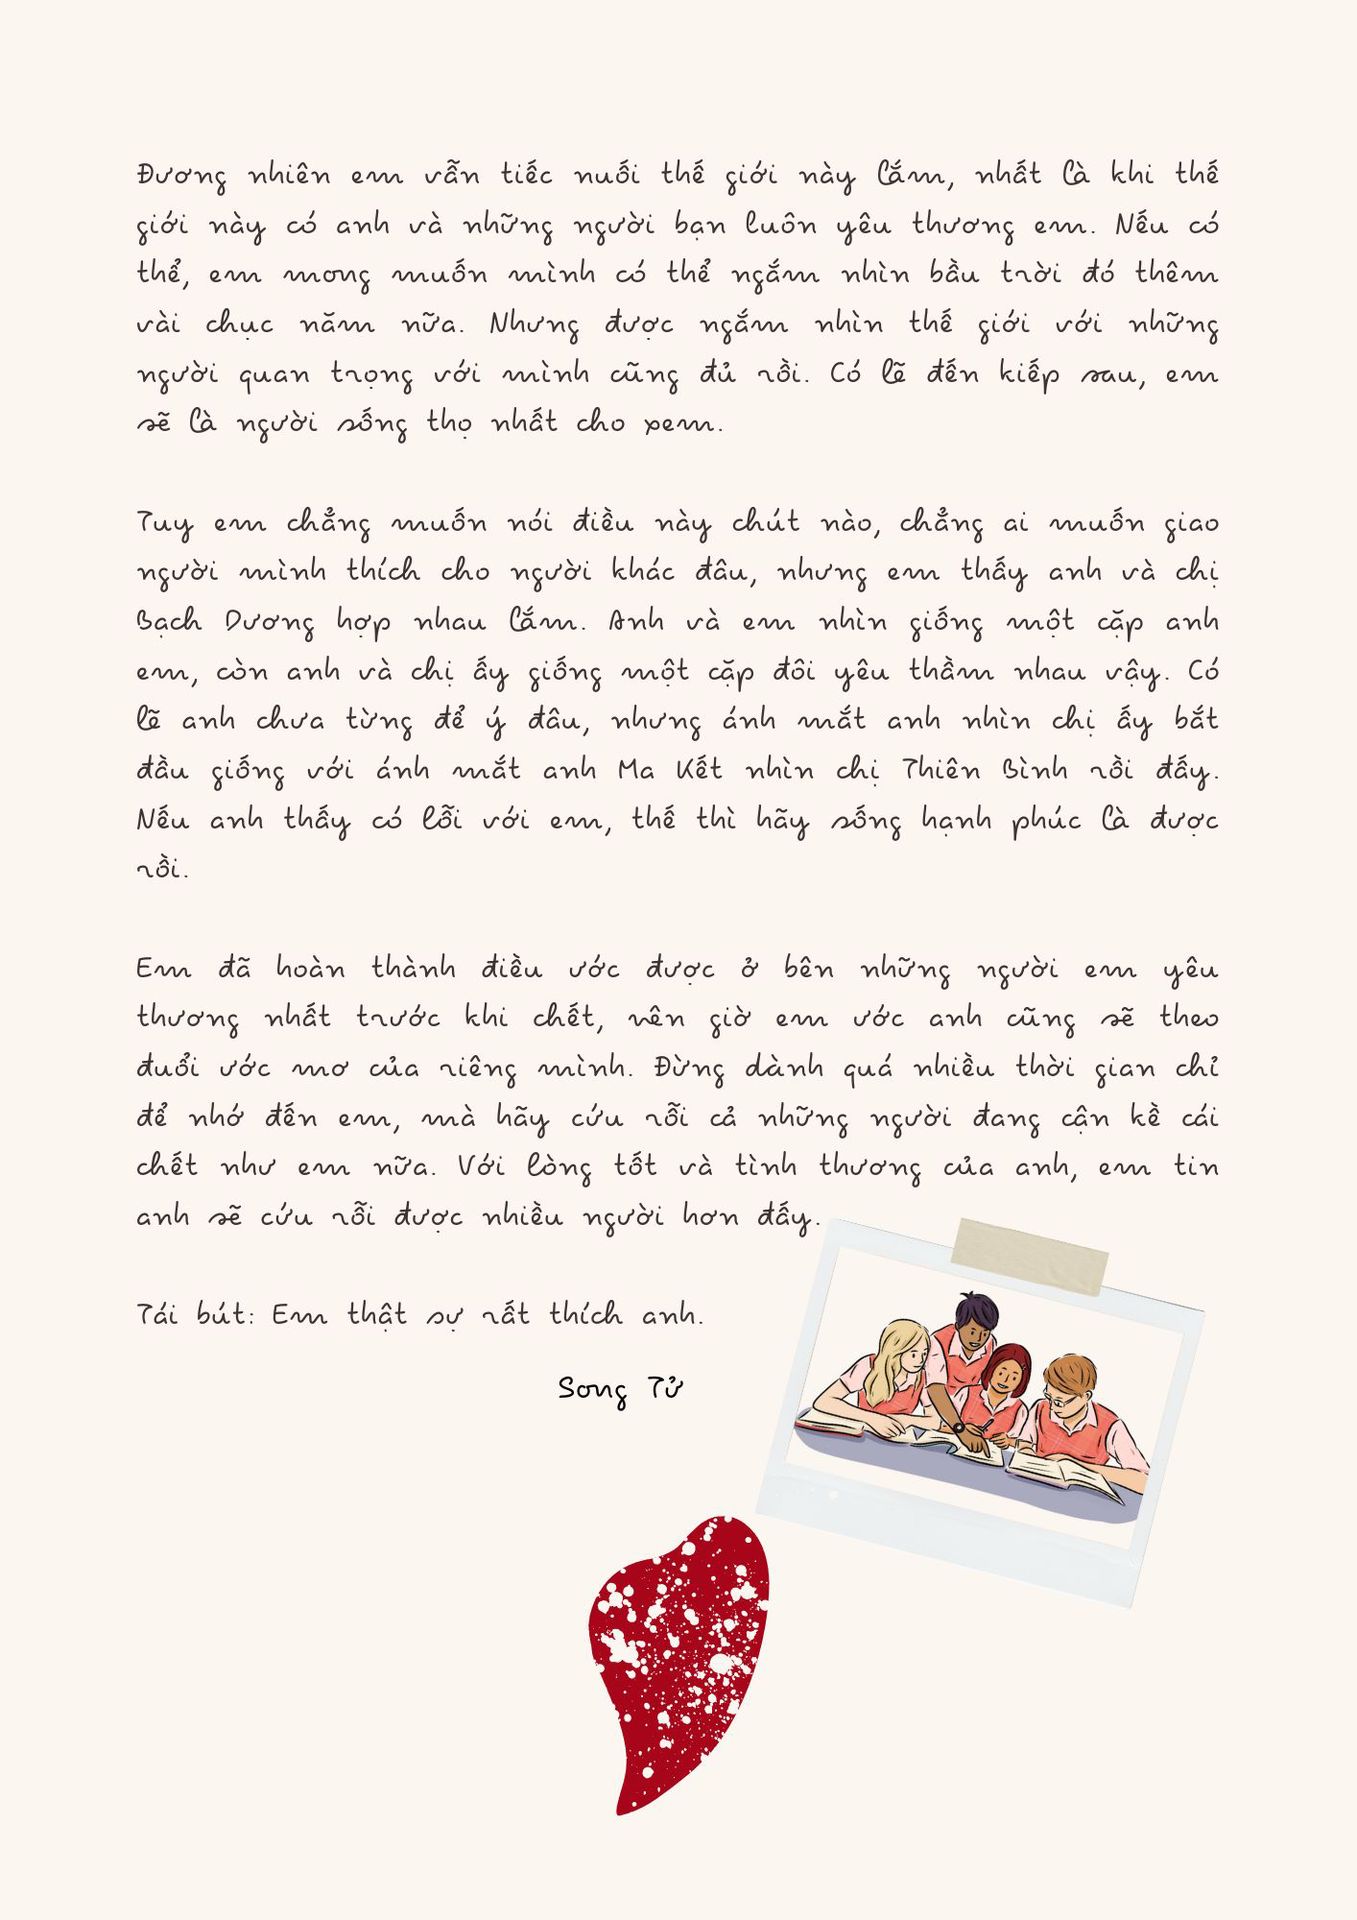 Đương nhiên em vẫn tiếc nuối thế giới này lắm, nhất là khi thế
giới này có anh và những người bạn luôn yêu thương em. Nếu có
thể, em mong muốn mình có thể ngắm nhìn bầu trời đó thêm
vài chục năm nữa. Nhưng được ngắm nhìn thế giới với những
người quan trọng với mình cũng đủ rồi. Có lẽ đến kiếp sau, em
sẽ là người sống thọ nhất cho xem.
Tuy em chẳng muốn nói điều này chút nào, chẳng ai muốn giao
người mình thích cho người khác đâu, nhưng em thấy anh và chị
Bạch Dương hợp nhau lắm. Anh và em nhìn giống một cặp anh
em, còn anh và chị ấy giống một cặp đôi yêu thầm nhau vậy. Có
lẽ anh chưa từng để ý đâu, nhưng ánh mắt anh nhìn chị ấy bắt
đầu giống với ánh mắt anh Ma Kết nhìn chị Thiên Bình rồi đấy.
Nếu anh thấy có lỗi với em, thế thì hãy sống hạnh phúc là được
rồi.
Em đã hoàn thành điều ước được ở bên những người em yêu
thương nhất trước khi chết, nên giờ em ước anh cũng sẽ theo
đuổi ước mơ của riêng mình. Đừng dành quá nhiều thời gian chỉ
để nhớ đến em, mà hãy cứu rỗi cả những người đang cận kề cái
chết như em nữa. Với lòng tốt và tình thương của anh, em tin
anh sẽ cứu rỗi được nhiều người hơn đấy.
Tái bút: Em thật sự rất thích anh.
Song Tử